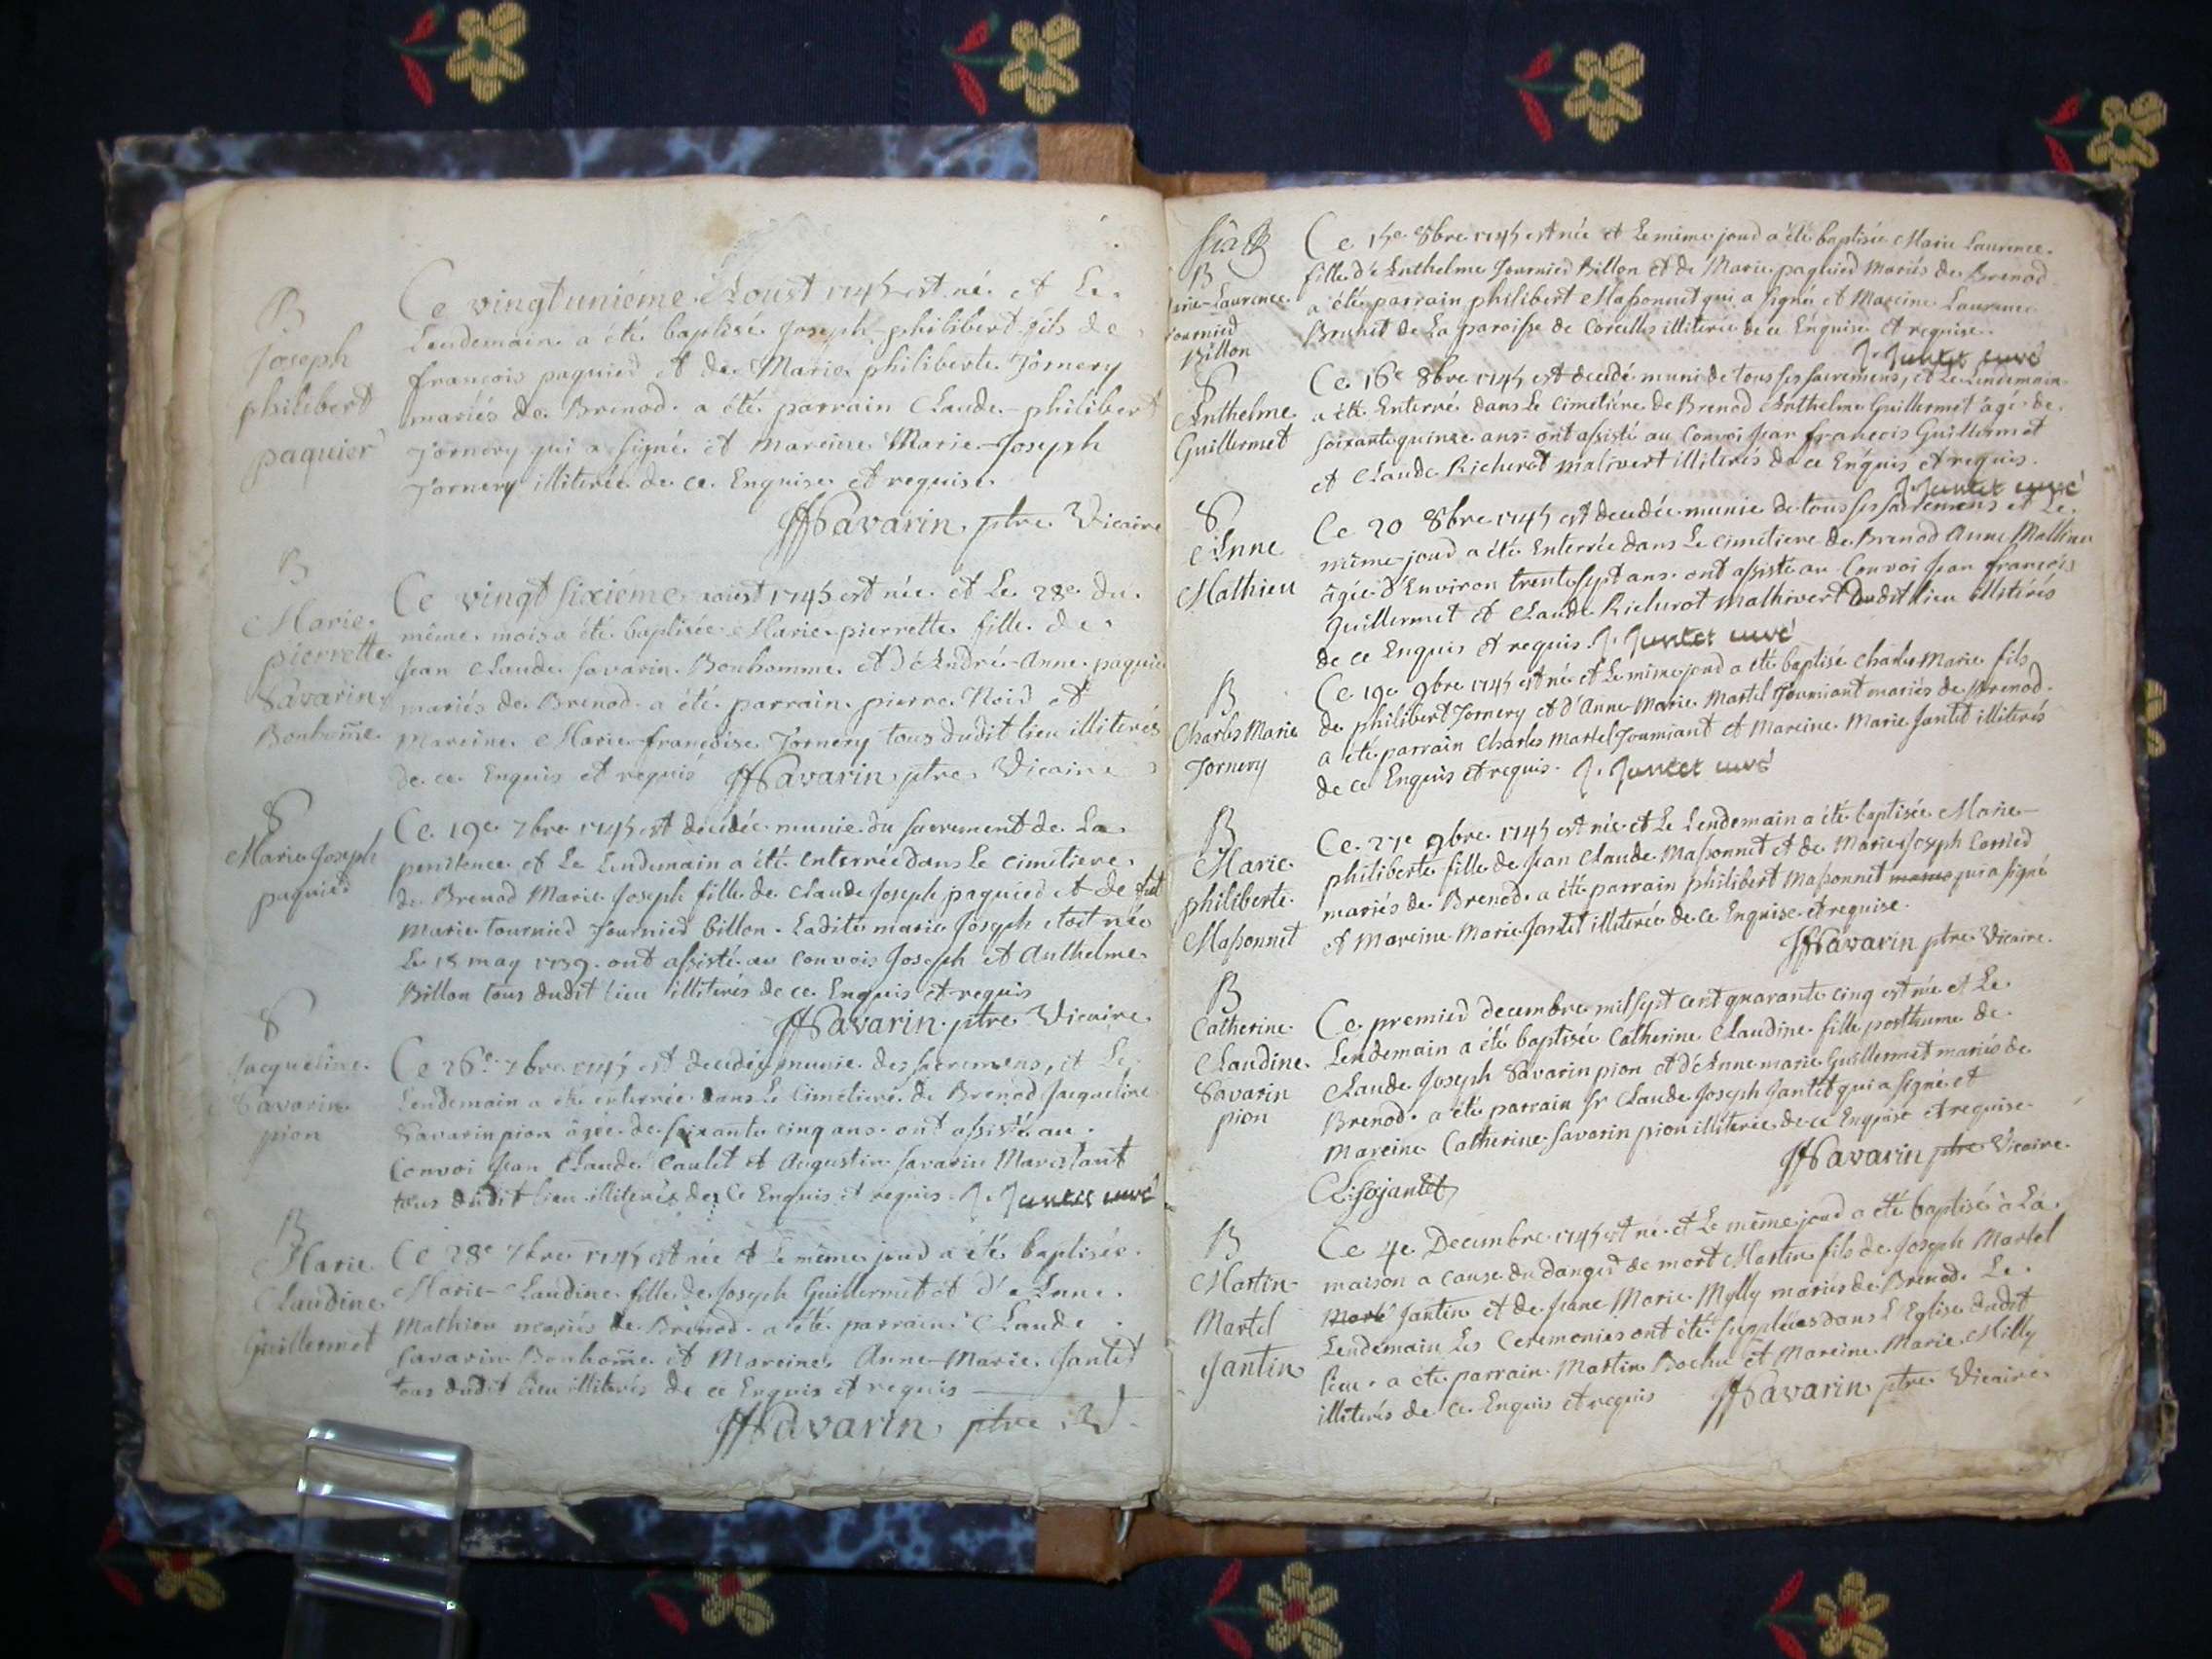 B
Joseph
philibert
paquier
Ce vingtunième Aoust 1745 est né et Le
Lendemain a été baptisé Joseph-philibert fils de
françois paquier et de Marie philiberte Jornery
mariés de Brenod. a été parrain Claude-philibert
Jornery qui a signé et mareine Marie-Joseph
Jornery illiterée de ce Enquise et requise.
Savarin ptre Vicaire
B
Marie
pierrette
Savarin
Bonhom̄e
Ce vingt sixiéme aoust 1745 est née et Le 28e du
même mois a été baptisée Marie pierrette fille de
Jean Claude Savarin Bonhomme et d'André-Anne paquier
mariés de Brenod. a été parrain pierre Noid et
Mareine Marie françoise Jornery tous dudit lieu illiterés
de ce Enquis et requis Savarin ptre Vicaire
S
Marie Joseph
paquier
Ce 19e 7bre 1745 est decedée munie du sacrement de La
penitence et Le Lendemain a été enterrée dans Le cimetiere
de Brenod Marie Joseph fille de Claude Joseph paquier et de fut
Marie tournier Journied billon. Ladite marie Joseph etoit née
Le 18 may 1739. ont assisté au convois Joseph et Anthelme
Billon tous dudit lieu illiterés de ce Enquis et requis
Savarin ptre Vicaire
S
Jacqueline
Savarin
pion
Ce 26e 7bre 1745 est decedée munie des sacremens, et Le
Lendemain a été enterrée dans Le Cimetiere de Brenod Jacqueline
Savarin pion âgée de soixante cinq ans. ont assisté au
Convoi Jean Claude Caulet et Augustin Savarin Marestant
tous dudit lieu illiterés de ce Enquis et requis. J. Jantet curé
B
Marie
Claudine
Guillermet
Ce 28e 7bre 1745 est née et Le même jour a été baptisée
Marie-Claudine fille de Joseph Guillermet et d'Anne
Mathieu mariés de Brenod. a été parrain Claude
Savarin Bonhom̄e et Mareine Anne-Marie Jantet
tous dudit lieu illiterés de ce Enquis et requis
Savarin ptre V.
B
Marie-Laurence
Journied
Billon
Ce 15e 8bre 1745 est née et Le même jour a été baptisée Marie Laurence
fille d'Anthelme Journied Billon et de Marie paquied Mariés de Brenod
a été parrain philibert Massonnet qui a signé et Mareine Laurence
Brunet de La paroisse de Corcelles illiterée de ce Enquise et requise.
J. Jantet curé
S
Anthelme
Guillermet
Ce 16e 8bre 1745 est decedé muni de tous ses sacremens, et Le Lendemain
a été Enterré dans Le Cimetiére de Brenod Anthelme Guillermet âgé de
soixante quinze ans. ont assisté au Convoi Jean françois Guillermet
et Claude Richerot malivert illiterés de ce Enquis et requis.
J. Jantet curé
S
Anne
Mathieu
Ce 20 8bre 1745 est decedée munie de tous ses sacremens et Le
même jour a été Enterrée dans Le cimetiere de Brenod Anne Mathieu
âgée d'Environ trente sept ans. ont assisté au Convoi Jean françois
Guillermet et Claude Richerot Malhivert Dudit lieu illiterés
de ce Enquis et requis. J. Jantet curé
B
Charles Marie
Jornery
Ce 19e 9bre 1745 est né et Le même jour a été baptisé Charles Marie fils
de philibert Jornery et d'Anne-Marie Martel Journiant mariés de Brenod.
a été parrain Charles Martel Journiant et Mareine Marie Jantet illiterés
de ce Enquis et requis. J. Jantet curé
B
Marie
philiberte
Massonnet
Ce 27e 9bre 1745 est née et Le Lendemain a été baptisée Marie-
philiberte fille de Jean Claude Massonnet et de Marie Joseph Carried
mariés de Brenod. a été parrain philibert Massonnet qui a signé
et Mareine Marie Jantet illiterée de ce Enquise et requise.
Savarin ptre Vicaire.
B
Catherine
Claudine
Savarin
pion
Ce premier decembre mil sept cent quarante cinq est née et Le
Lendemain a été baptisée Catherine Claudine fille posthume de
Claude Joseph Savarin pion et d'Anne marie Guillermet mariés de
Brenod. a été parrain Sr Claude Joseph Jantet qui a signé et
Mareine Catherine Savarin pion illiterée de ce Enquise et requise.
Savarin ptre Vicaire.
B
Martin
Martel
Jantin
Ce 4e Decembre 1745 est né et Le même jour a été baptisé à La
maison a cause du danger de mort Martin fils de Joseph Martel
Jantin et de Jeane Marie Mylly mariés de Brenod. Le
Lendemain Les Ceremonies ont été supplées dans L'Eglise dudit
lieu. a été parrain Martin Bochu et Mareine Marie Milly
illiterés de ce Enquis et requis Savarin ptre Vicaire